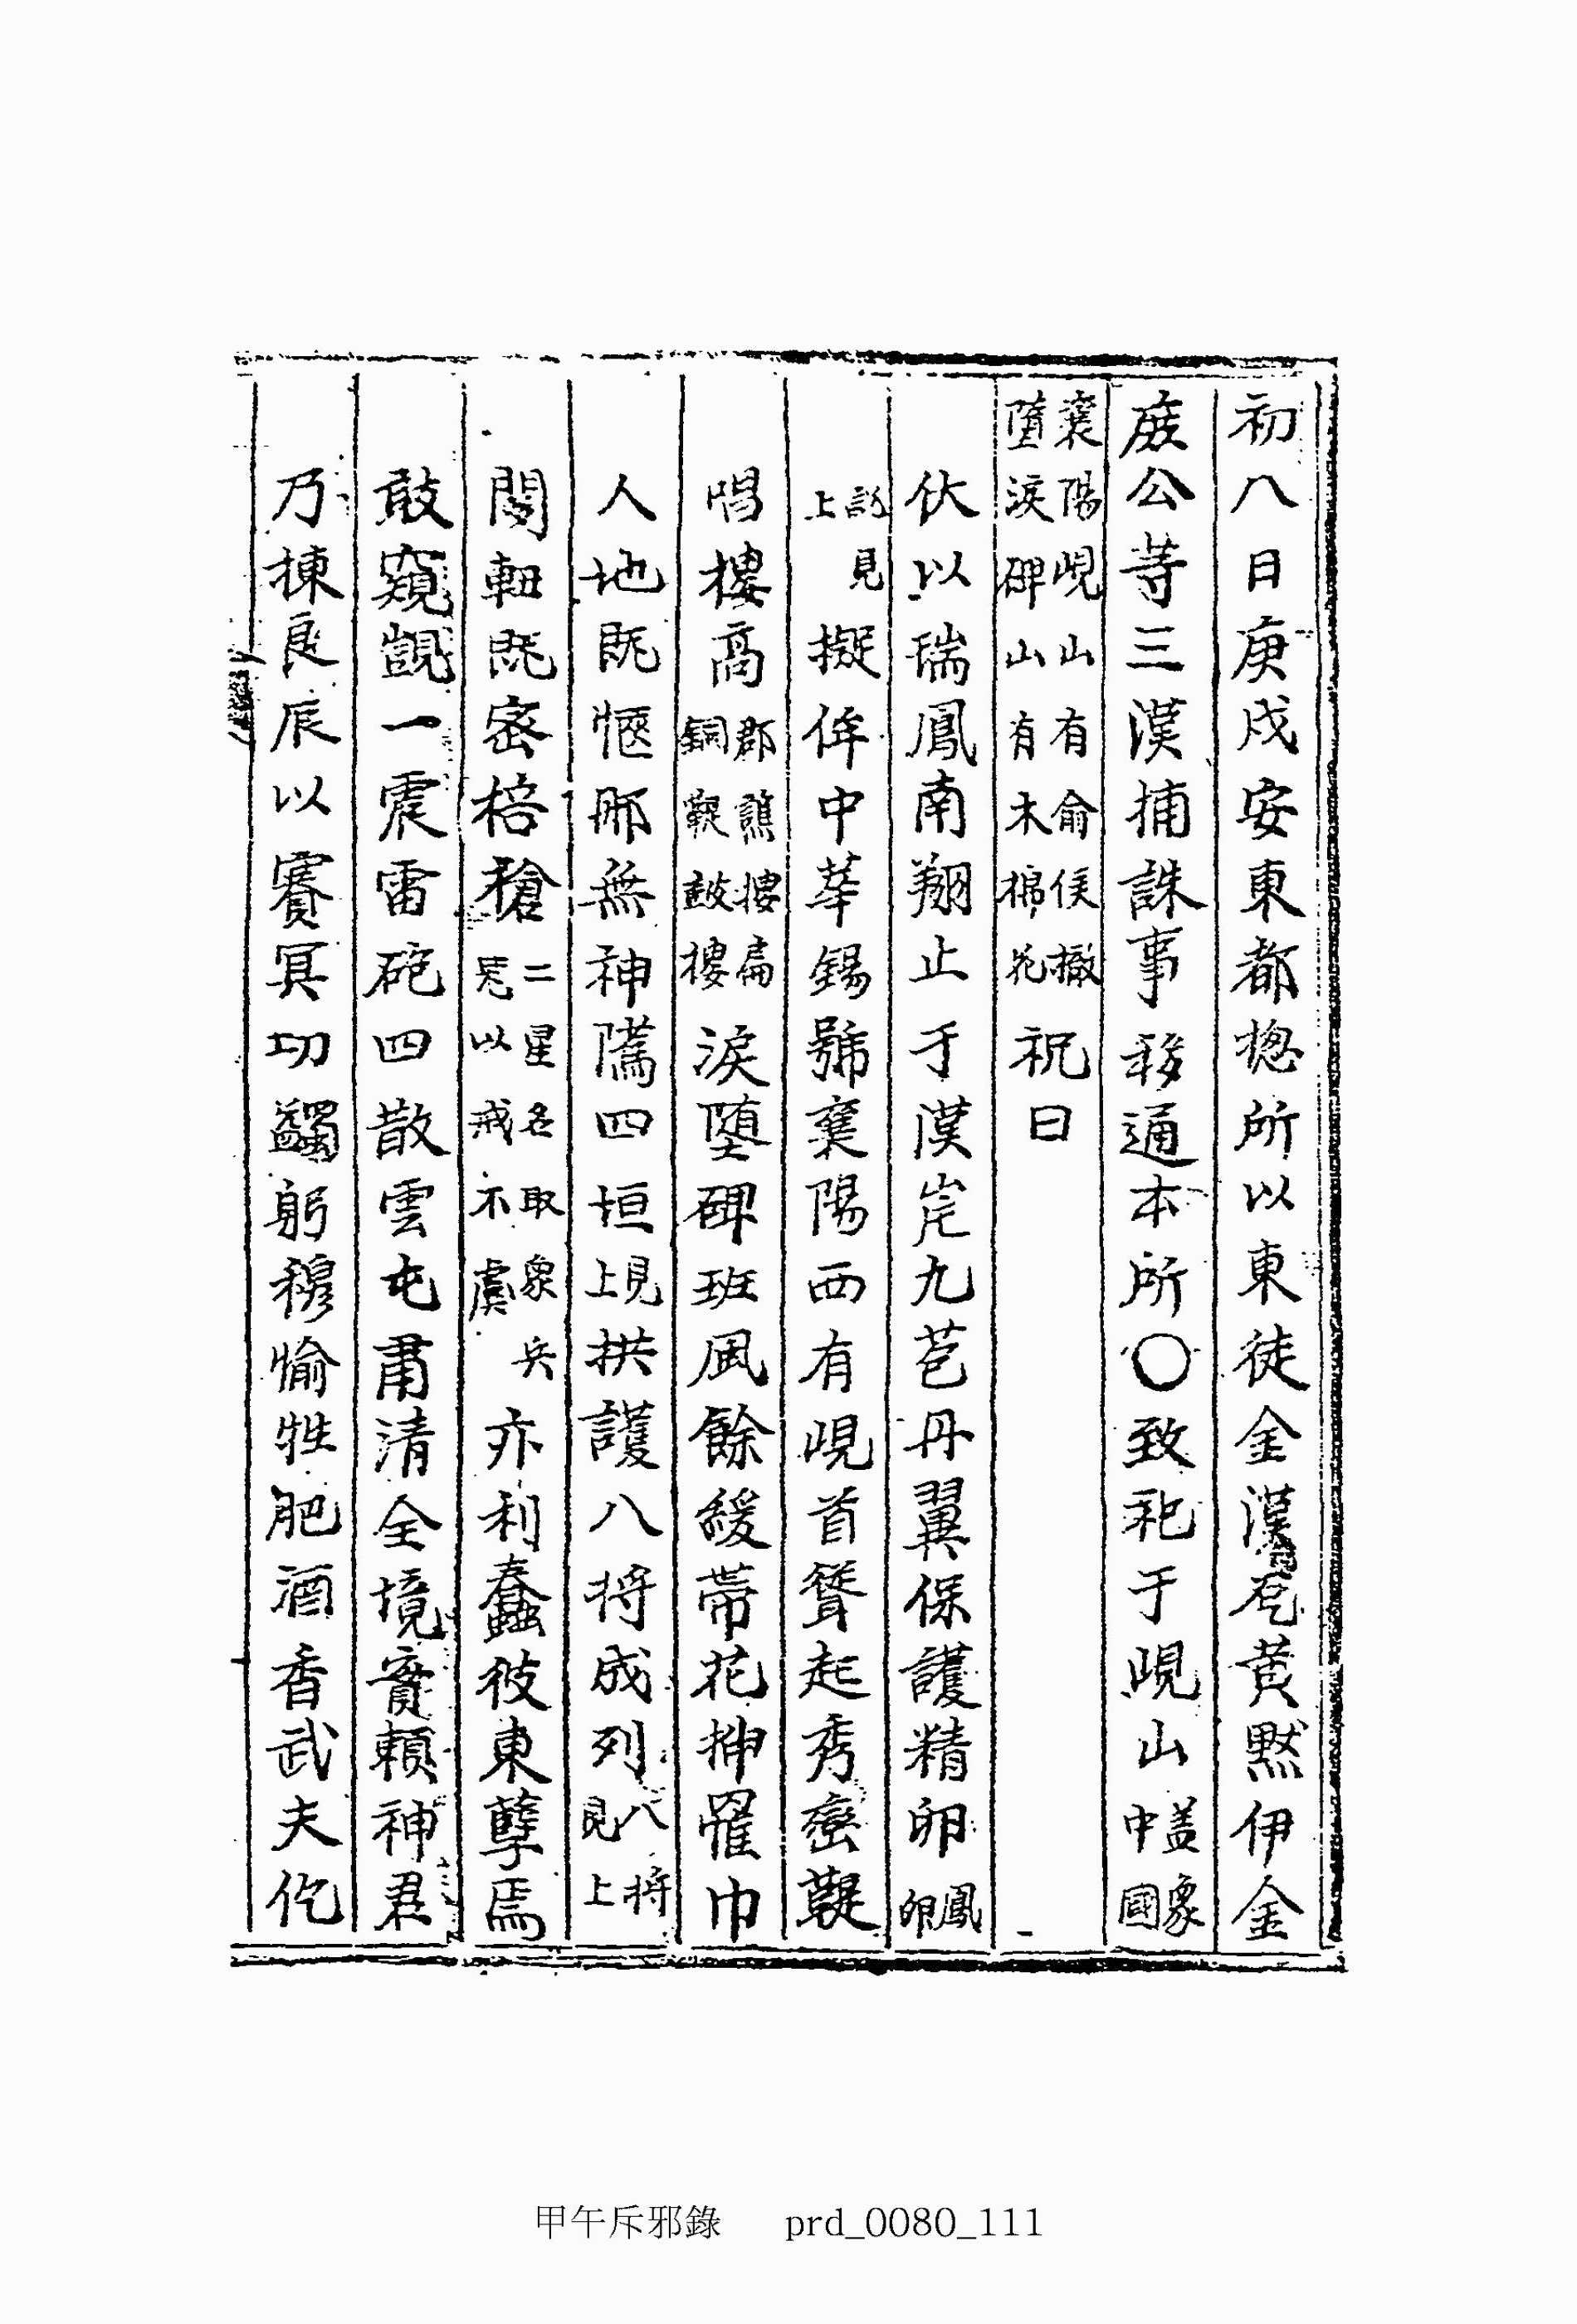 初八日庚戌安東都摠所以東徒金漢乭黃默伊金
廐公䓁三漢捕誅事移通本所〇致祀于峴山盖象中國
襄陽峴山有俞侯撤墮淚碑山有木棉花祝曰
伏以瑞鳳南翔止于漢岸九苞丹翼保護精卵鳳卵
說見上擬侔中華錫號襄陽西有峴首聳起秀巒鞮
楊樓高郡譙樓扁銅鞮鼓樓淚墮碑斑風餘緩帶花抻罹巾
人地既愜那無神隲四垣見上拱護八將成列八將見上
閣軸既密棓槍二星名取象兵㒵以戒不虞亦利蠢彼東孽焉
敢窺覬一震雷砲四散雲屯肅清全境實賴神君
乃揀良辰以賽冥功蠲躬穆愉牲肥酒香武夫仡
甲午斥邪錄 prd_0080_111